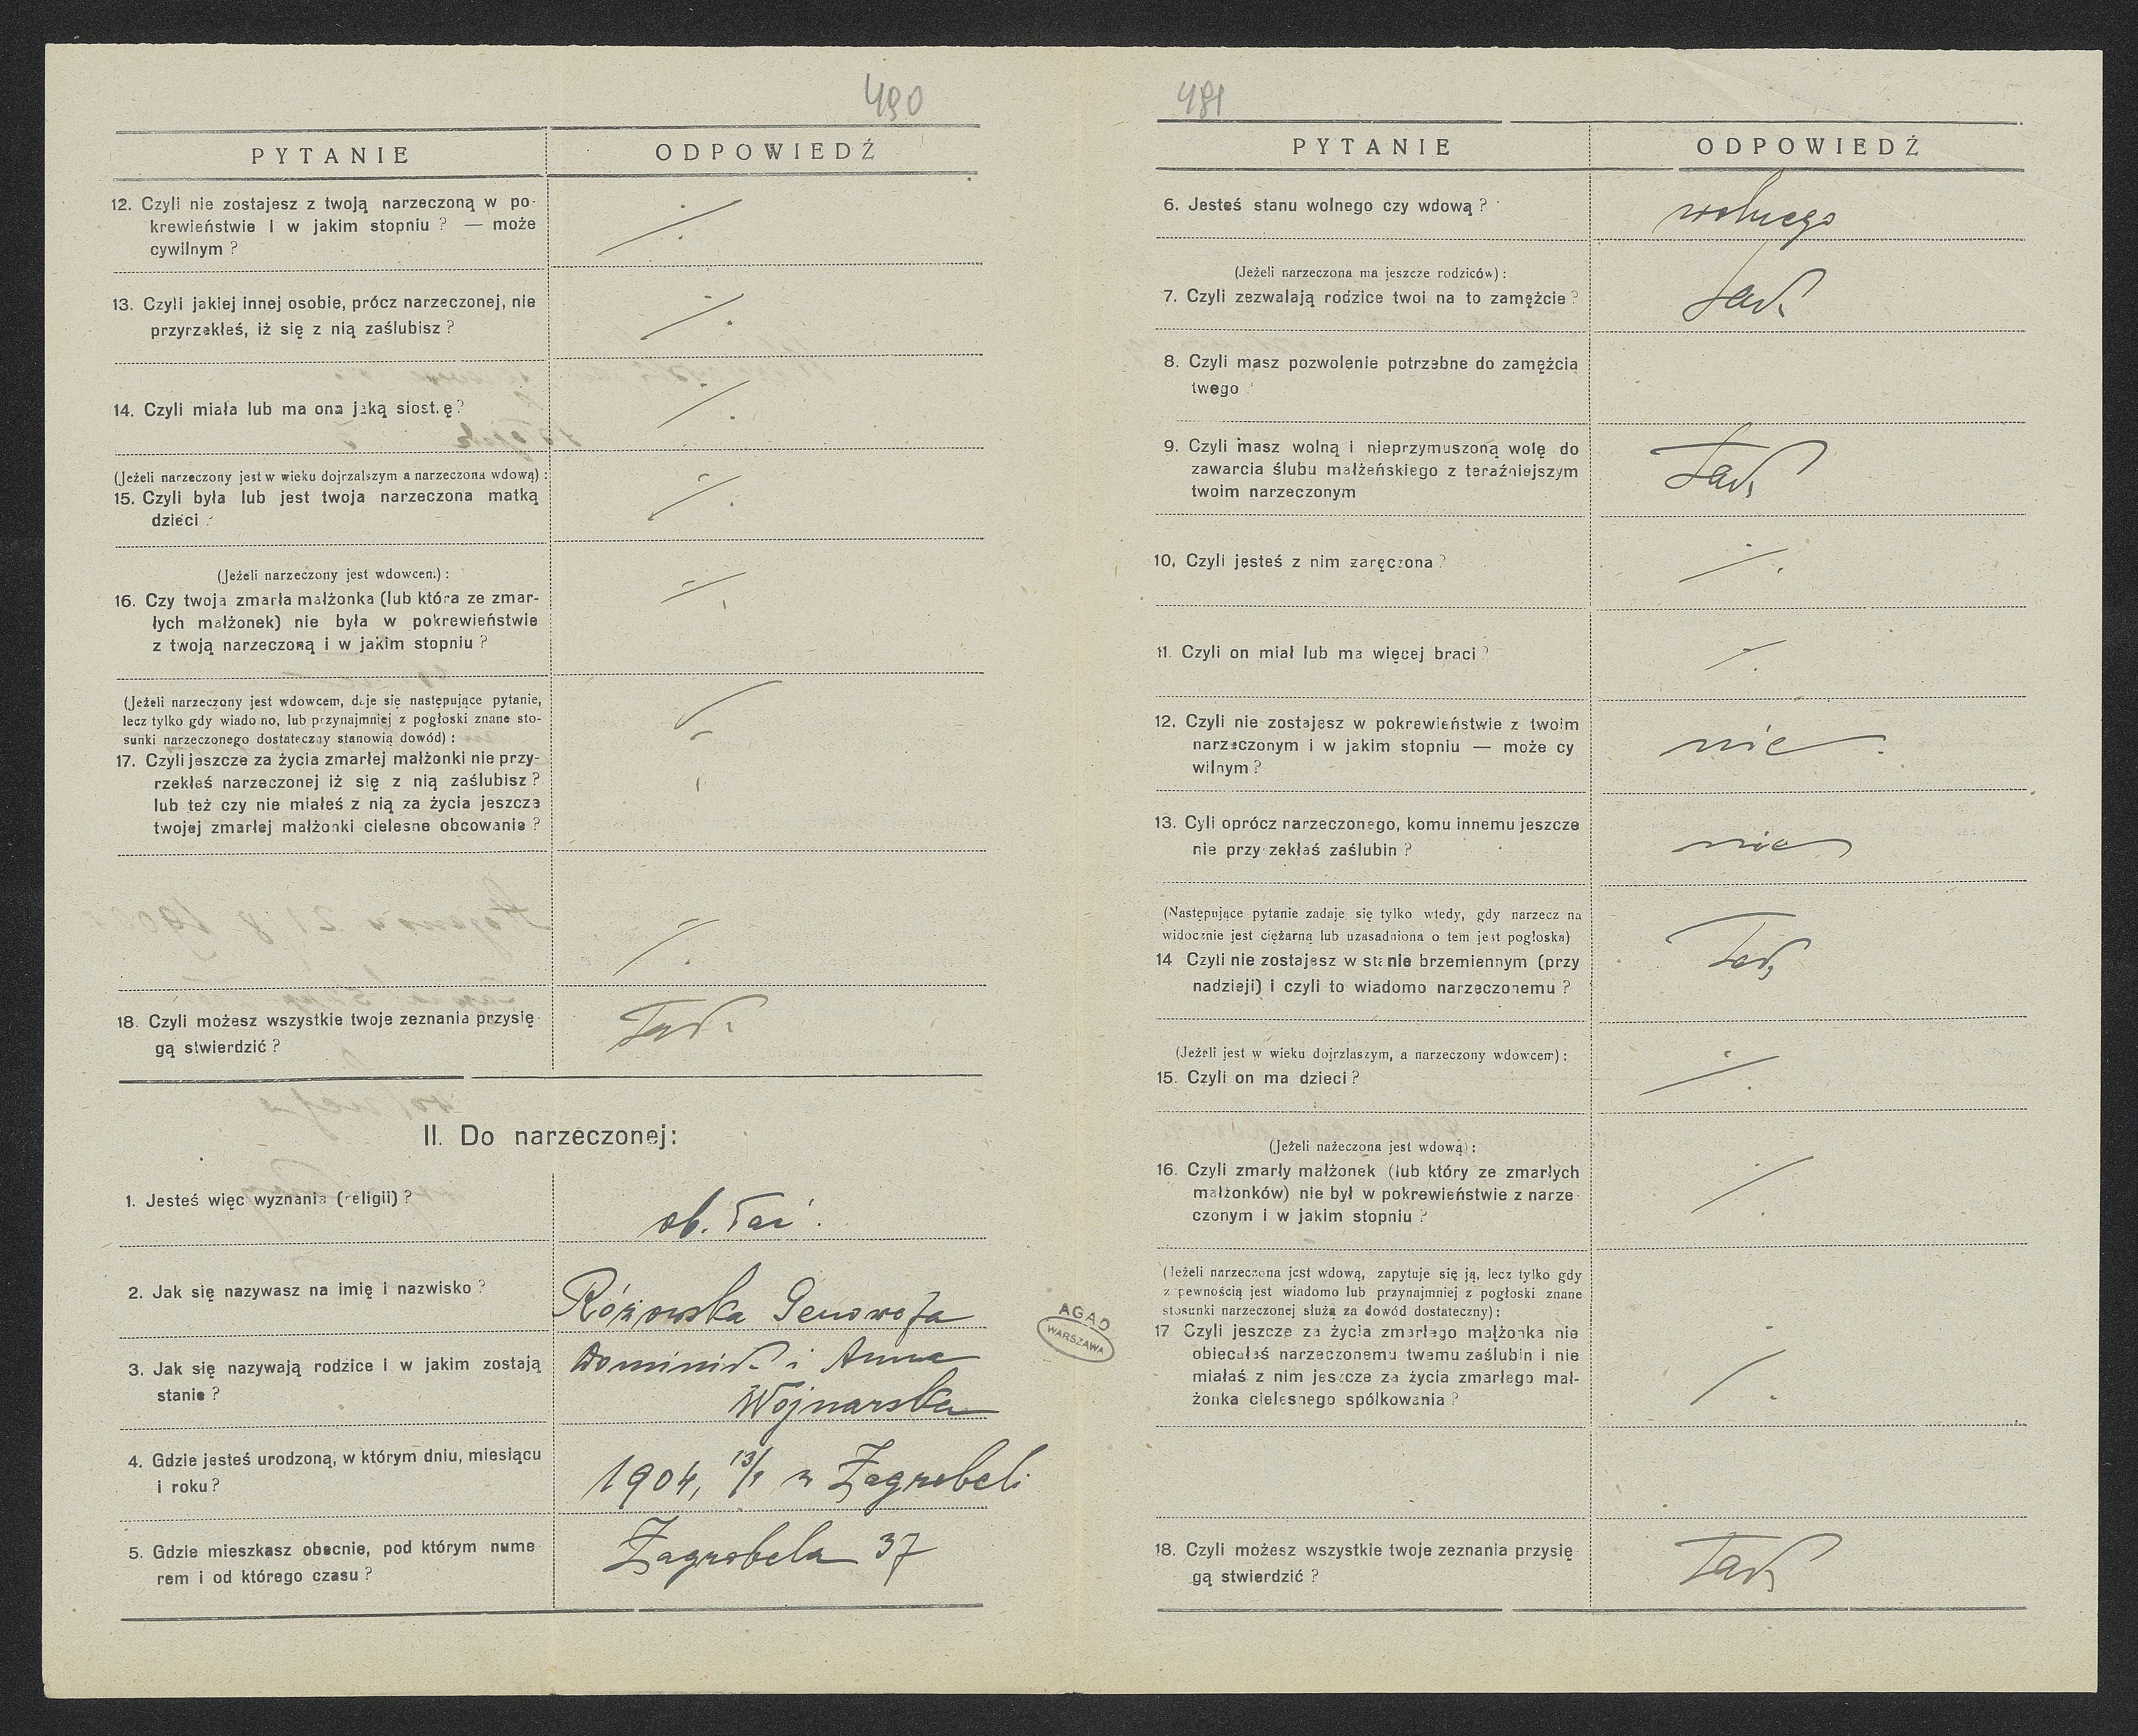 490
PYTANIE ODPOWIEDŹ
12. Czyli nie zostajesz z twoją narzeczoną w po-
krewieństwie i w jakim stopniu ? — może
cywilnym ?
./.
13. Czyli jakiej innej osobie, prócz narzeczonej, nie
przyrzekłeś, iż się z nią zaślubisz ?
./.
14. Czyli miała lub ma ona jaką siost.ę?
./.
(Jeżeli narzeczony jest w wieku dojrzalszym a narzeczona wdową) :
15. Czyli była lub jest twoja narzeczona matką
dzieci ?
./.
(Jeżeli narzeczony jest wdowcem.) :
16. Czy twoja zmarła małżonka (lub która ze zmar-
łych małżonek) nie była w pokrewieństwie
z twoją narzeczoną i w jakim stopniu ?
./.
(Jeżeli narzeczony jest wdowcem, daje się następujące pytanie,
lecz tylko gdy wiadono, lub przynajmniej z pogłoski znane sto-
sunki narzeczonego dostateczny stanowią dowód) :
17. Czyli jeszcze za życia zmarłej małżonki nie przy-
rzekłeś narzeczonej iż się z nią zaślubisz ?
lub też czy nie miałeś z nią za życia jeszcze
twojej zmarłej małżonki cielesne obcowanie ?
./.
18. Czyli możesz wszystkie twoje zeznania przysię-
gą stwierdzić ?
Tak.
II. Do narzeczonej:
1. Jesteś więc wyznania (religii) ?
ob. łać.
2. Jak się nazywasz na imię i nazwisko ?
Różowska Genowefa
3. Jak się nazywają rodzice i w jakim zostają
stanie ?
Dominik i Anna
Wojnarska
4. Gdzie jesteś urodzoną, w którym dniu, miesiącu
i roku?
1904, 13/1 w Zagrobeli
5. Gdzie mieszkasz obecnie, pod którym nume-
rem i od którego czasu ?
Zagrobela 37
AGAD
WARSZAWA
481
PYTANIE ODPOWIEDŹ
6. Jesteś stanu wolnego czy wdową ?
wolnego
(Jeżeli narzeczona ma jeszcze rodziców) :
7. Czyli zezwalają rodzice twoi na to zamęźcie ?
Tak
8. Czyli masz pozwolenie potrzebne do zamężcia
twego ?
9. Czyli masz wolną i nieprzymuszoną wolę do
zawarcia ślubu małżeńskiego z teraźniejszym
twoim narzeczonym
Tak
10. Czyli jesteś z nim zaręczona ?
./.
11. Czyli on miał lub ma więcej braci ?
./.
12. Czyli nie zostajesz w pokrewieństwie z twoim
narzeczonym i w jakim stopniu — może cy
wilnym ?
nie
13. Cyli oprócz narzeczonego, komu innemu jeszcze
nie przy zekłaś zaślubin ?
nie
(Następujące pytanie zadaje się tylko wtedy, gdy narzecz na
widocznie jest ciężarną lub uzasadniona o tem jest pogłoska)
14 Czyli nie zostajesz w stanie brzemiennym (przy
nadzieji) i czyli to wiadomo narzeczonemu ?
Tak
(Jeżeli jest w wieku dojrzlaszym, a narzeczony wdowcem) :
15. Czyli on ma dzieci ?
./.
(Jeżeli nażeczona jest wdową) :
16. Czyli zmarły małżonek (lub który ze zmarłych
małżonków) nie był w pokrewieństwie z narze-
czonym i w jakim stopniu ?
./.
(Jeżeli narzeczona jest wdową, zapytuje się ją, lecz tylko gdy
z pewnością jest wiadomo lub przynajmniej z pogłoski znane
stosunki narzeczonej służą za dowód dostateczny) :
17 Czyli jeszcze za życia zmarłego małżonka nie
obiecałaś narzeczonemu twemu zaślubin i nie
miałaś z nim jeszcze za życia zmarłego mał-
żonka cielesnego spólkowania ?
./.
18. Czyli możesz wszystkie twoje zeznania przysię-
gą stwierdzić ?
Tak